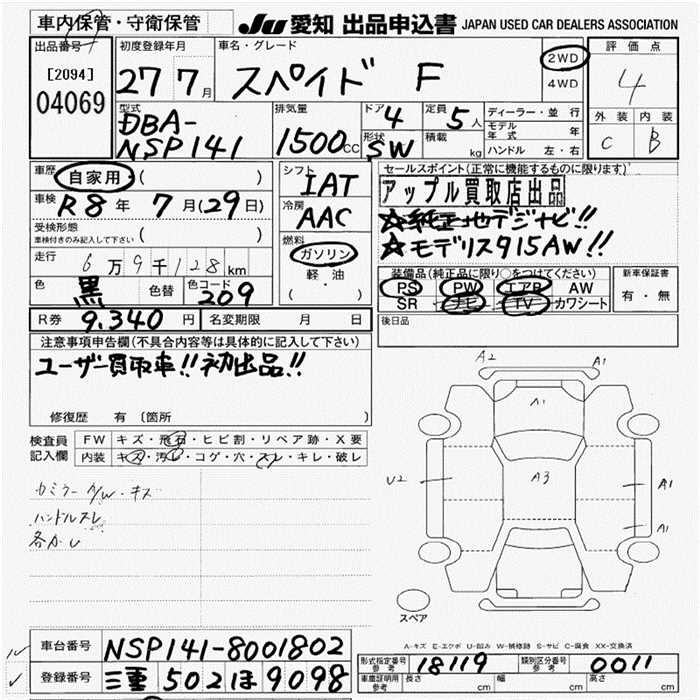 車内保管・守衛保管
JU 愛知 出品申込書 JAPAN USED CAR DEALERS ASSOCIATION
出品番号 初度登録年月 車名・グレード 評価点
[2094] 04069
27 7月 スペイド F 2WD 4WD 4
型式 排気量 ドア 4 定員 5人 ディーラー・並行 外装 内装
DBA-NSP141 1500cc 形状 SW 積載 kg モデル年式 年 C B
ハンドル 左・右
車歴 自家用 ( ) シフト IAT セールスポイント(正常に機能するものに限ります)
アップル買取店出品
車検 R8年 7月(29日) 冷房 AAC ☆純正地デジナビ!!
受検形態 車検付きのみ記入して下さい ( ) 燃料 ☆モデリス915AW!!
走行 6万9千128km ガソリン 軽油 ( ・ ) 装備品(純正品に限り○をつけてください) 新車保証書
色 黒 色替 色コード 209 PS PW エアB AW 有・無
SR ナビ TV カワシート
R券 9,340円 名変期限 月 日 後日品
注意事項申告欄(不具合内容等は具体的に記入して下さい)
ユーザー買取車!!初出品!!
修復歴 有 (箇所
検査員記入欄 FW キズ・飛石・ヒビ割・リペア跡・X要
内装 キズ・汚レ・コゲ・穴・スレ・キレ・破レ
カミラーA/W・キズ
ハンドルスレ
各かし
A2 A1
A1
U2 A3 A1
A1
スペア
A-キズ E-エクボ U-凹み W-補修跡 S-サビ C-腐食 XX-交換済
車台番号 NSP141-8001802
登録番号 三重 502 ほ 9098
形式指定番号 参考 18119 類別区分番号 参考 0011
車庫証明用 参考 長さ cm 幅 cm 高さ cm